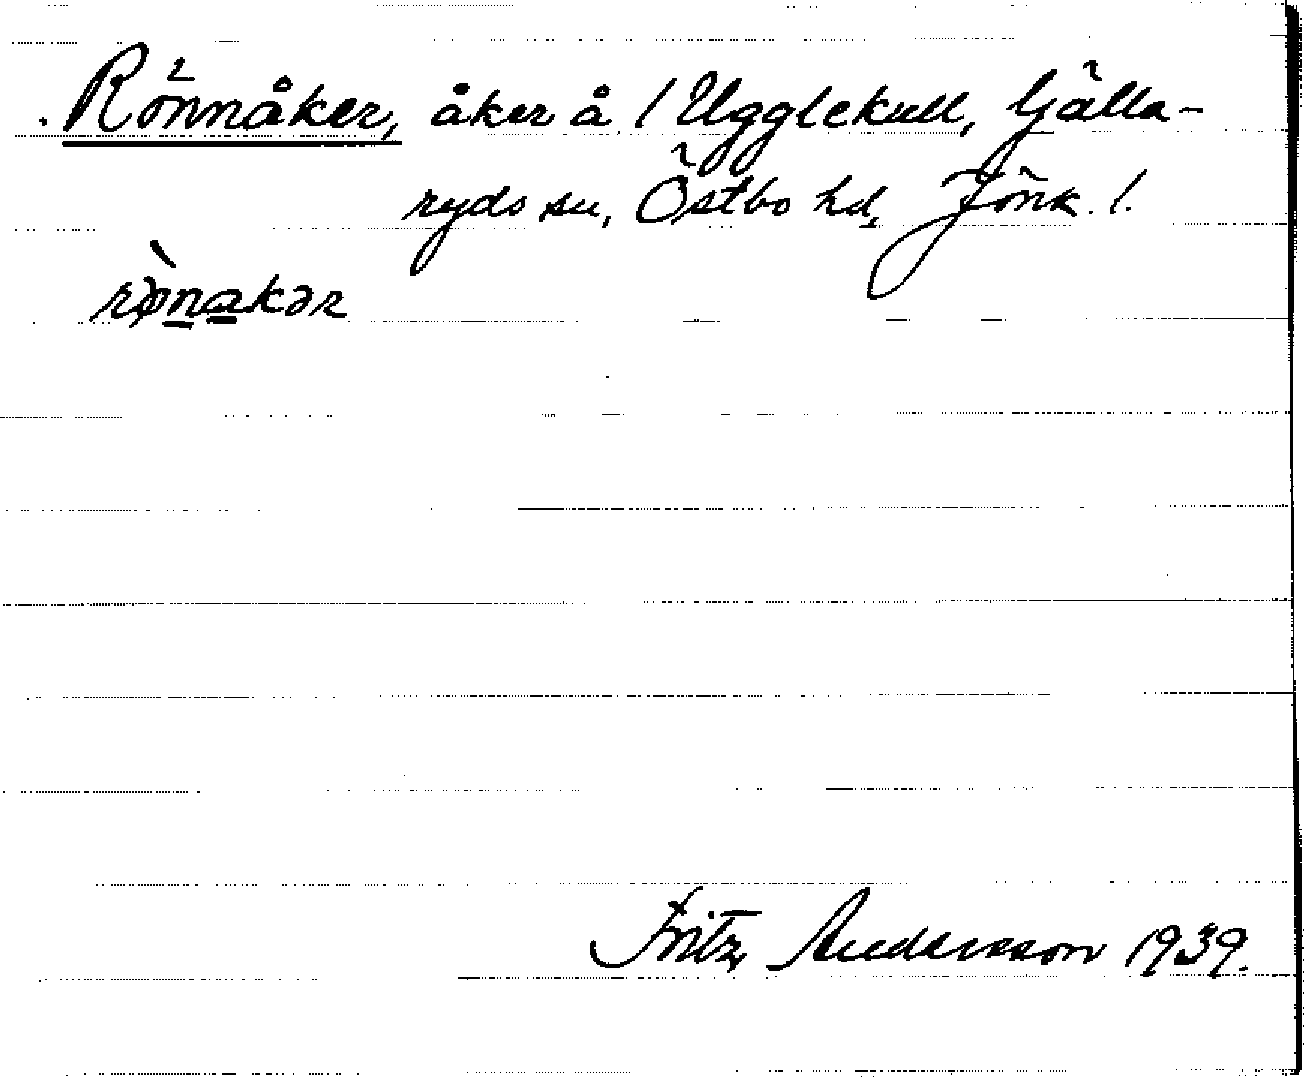 Rönnåker, åker å 1 Ugglekull, Gälla-
ryds sn, Östbo hd, Jönk. l.
rø̀nakər
Fritz Andersson 1939.